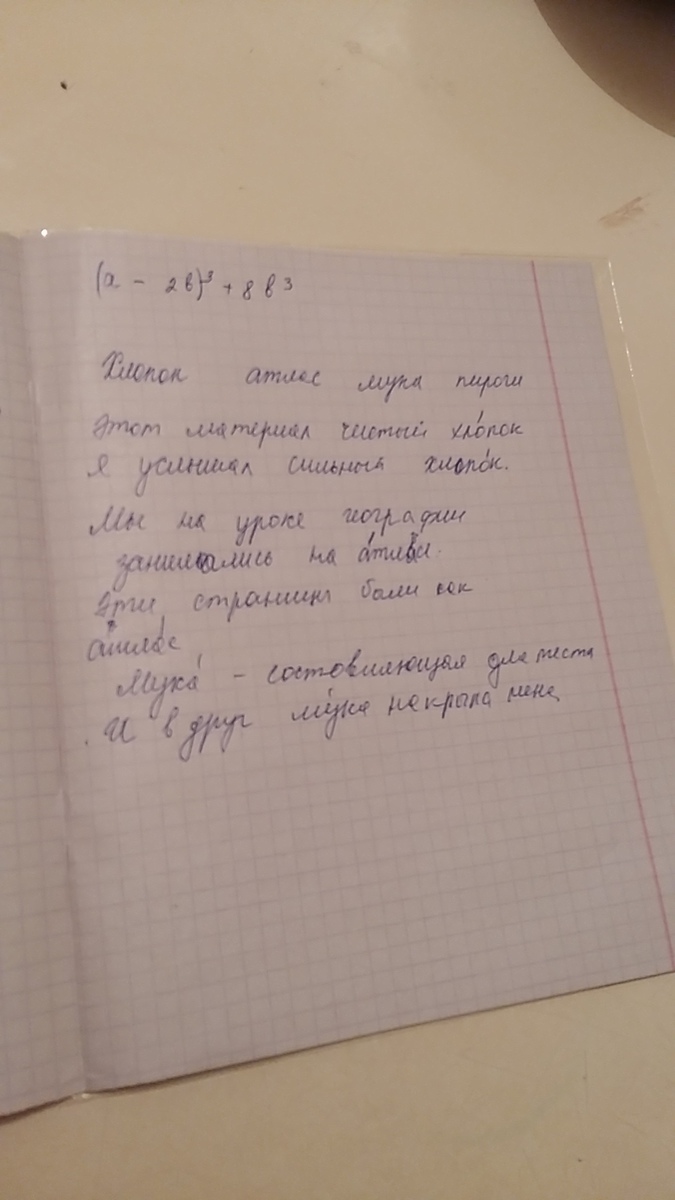 (a - 2b)³ + 8b³
Хлопок атлас мука пироги
Этот материал чистый хло́пок
Я услышал сильный хлопо́к.
Мы на уроке географии
занимались на а́тласе.
Эти страницы были как
атла́с
Мука́ - состовляющая для теста
И в друг му́ка накрыла меня